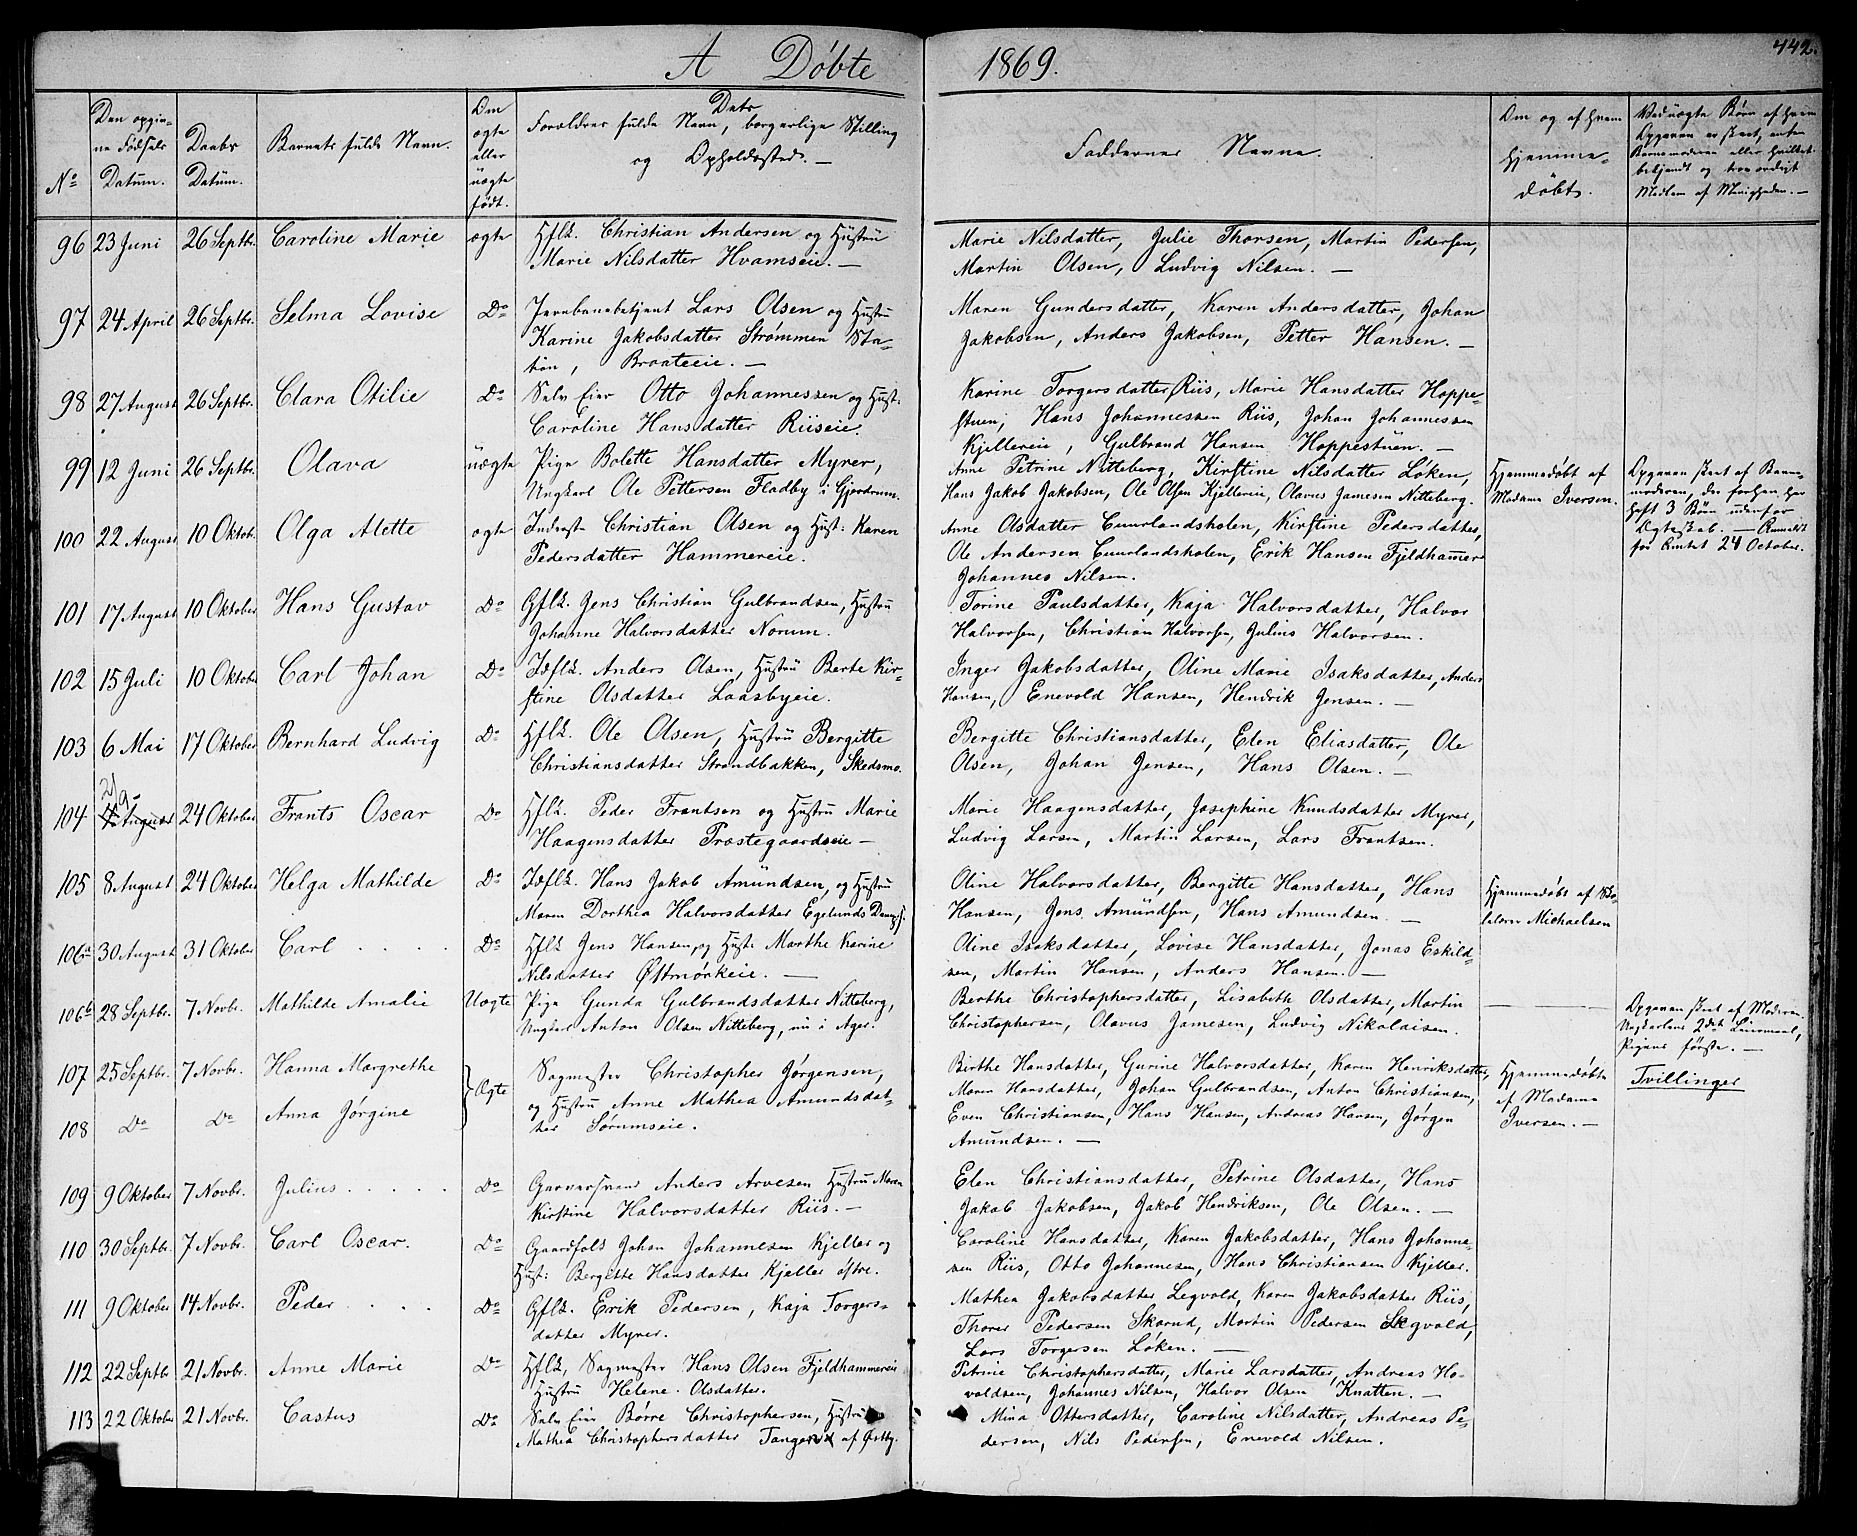 A Døbte 1869. 442.
No
Den opgivne Fødsels Datum.
Daabs Datum.
Barnets fulde Navn.
Om ægte eller uægte født.
Forældres fulde Navn, Dets borgerlige Stilling og Opholdssted. —
Faddernes Navne.
Om og af hvem hjemmedøbt.
Ved uægte Børn af hvem Opgaven er skeet, enten Barnemoderen eller hvilket bekjendt og troværdigt Medlem af Menigheden. —
96 23 Juni 26 Septbr. Caroline Marie ægte Hflk. Christian Andersen og Hustru
Marie Nilsdatter Hvamseie. —
Marie Nilsdatter, Julie Thorsen, Martin Pedersen,
Martin Olsen, Ludvig Nilsen. —
97 24 April 26 Septbr. Selma Lovise Do Jernbanebetjent Lars Olsen og Hustru
Karine Jakobsdatter Strømmen Sta-
tion, Braateeie. —
Maren Gundersdatter, Karen Andersdatter, Johan
Jakobsen, Anders Jakobsen, Petter Hansen. —
98 27 August 26 Septbr. Clara Otilie Do Selv Eier Otto Johannessen og Hust:
Caroline Hansdatter Riiseie.
Karine Torgersdatter Riis, Marie Hansdatter Hoppe-
stuen, Hans Johannessen Riis, Johan Johannessen
Kjellereie, Gulbrand Hansen Hoppestuen. —
99 12 Juni 26 Septbr. Olava uægte Pige Bolette Hansdatter Myrer,
Ungkarl Ole Pettersen Fladby i Gjerdrum.
Anne Petrine Nitteberg, Kirstine Nilsdatter Løken,
Hans Jakob Jakobsen, Ole Olsen Kjellereie, Olavus Jamesen Nitteberg.
Hjemmedøbt af
Madame Iversen.
Opgaven skeet af Barne-
moderen, der forhen har
havt 3 Børn udenfor
Ægteskab. — Anmeldt
for Amtet 24 October.
100 22 August 10 Oktob. Olga Alette ægte Inderst Christian Olsen og Hust: Karen
Pedersdatter Hammereie.
Anne Olsdatter Cuurlandsholen, Kirstine Pedersdatter,
Ole Andersen Cuurlandsholen, Erik Hansen Fjeldhamer
Johannes Nilsen.
101 17 August 10 Oktober Hans Gustav Do Gflk. Jens Christian Gulbrandsen, Hustru
Johanne Halvorsdatter Norum.
Torine Paulsdatter, Kaja Halvorsdatter, Halvor
Halvorsen, Christian Halvorsen, Julius Halvorsen.
102 15 Juli 10 Oktober Carl Johan Do Idflk. Anders Olsen, Hustru Berte Kir-
stine Olsdatter Laasbyeie.
Inger Jakobsdatter, Oline Marie Isaksdatter, Anders
Hansen, Enevold Hansen, Hendrik Jensen. —
103 6 Mai 17 Oktober Bernhard Ludvig Do Hflk. Ole Olsen, Hustru Bergitte
Christiansdatter Strandbakken, Skedsmo.
Bergitte Christiansdatter, Elen Eliasdatter, Ole
Olsen, Johan Jensen, Hans Olsen. —
104 August 24 Oktober Frants Oscar Do Hflk. Peder Frantsen og Hustru Marie
Haagensdatter Præstegaardseie —
Marie Haagensdatter, Josephine Knudsdatter Myrer,
Ludvig Larsen, Martin Larsen, Lars Frantsen.
105 8 August 24 Oktober Helga Mathilde Do Idflk. Hans Jakob Amundsen, og Hustru
Maren Dorthea Halvorsdatter Egelunds
Oline Halvorsdatter, Bergitte Hansdatter, Hans
Hansen, Jens Amundsen, Hans Amundsen. —
Hjemmedøbt af
Michaelsen
106a 30 August 31 Oktober Carl . . . . Do Hflk Jens Hansen, og Hust: Marthe Karine
Nilsdatter Østmørkeie. —
Oline Isaksdatter, Lovise Hansdatter, Jonas Eskild-
sen, Martin Hansen, Anders Hansen. —
106b 28 Septbr. 7 Novbr. Mathilde Amalie Uægte Pige Gunda Gulbrandsdatter Nitteberg,
Ungkarl Anton Olsen Nitteberg, nu i Ager.
Berthe Christophersdatter, Lisabeth Olsdatter, Martin
Christophersen, Olavus Jamesen, Ludvig Nikolaisen.
Opgaven skeet af Moderen.
Ungkarlens 2det Leiermaal,
Pigens første. —
107 25 Septbr. 7 Novbr. Hanna Margrethe
108 Do Do Anna Jørgine
Ægte Sagmester Christopher Jørgensen,
og Hustru Anne Mathea Amundsdat-
ter Sørumseie.
Birthe Hansdatter, Gurine Halvorsdatter, Karen Henriksdatter,
Maren Hansdatter, Johan Gulbrandsen, Anton Christiansen,
Even Christiansen, Hans Hansen, Andreas Hansen, Jørgen
Amundsen. —
Hjemmedøbte
af Madame
Iversen. —
Tvillinger
109 9 Oktober 7 Novbr. Julius . . . . . Do Anders Arvesen Hustru Maren
Kirstine Halvorsdatter Riis. —
Elen Christiansdatter, Petrine Olsdatter, Hans
Jakob Jakobsen, Jakob Hendriksen, Ole Olsen. —
110 30 Septbr. 7 Novbr. Carl Oscar. Do Gaardfolk Johan Johannesen Kjeller og
Hust: Bergitte Hansdatter Kjeller østre.
Caroline Hansdatter, Karen Jakobsdatter, Hans Johanne-
sen Riis, Otto Johannesen, Hans Christiansen Kjeller.
111 9 Oktober 14 Novbr. Peder . . . . Do Gflk. Erik Pedersen, Kaja Torgers-
datter Myrer.
Mathea Jakobsdatter Legvold, Karen Jakobsdatter Riis,
Thorer Pedersen Skarud, Martin Pedersen Legvold,
Lars Torgersen Løken. —
112 22 Septbr 21 Novbr. Anne Marie Do Hflk, Sagmester Hans Olsen Fjeldhammereie
Hustru Helene Olsdatter.
Petrine Christophersdatter, Marie Larsdatter, Andreas Ho-
valdsen, Johannes Nilsen, Halvor Olsen Knatten. —
113 22 Oktober 21 Novbr. Castus Do Selv Eier Børre Christophersen, Hustru
Mathea Christophersdatter Tangerud af Østby.
Mina Ottersdatter, Caroline Nilsdatter, Andreas Pe-
dersen, Nils Pedersen, Enevold Nilsen.